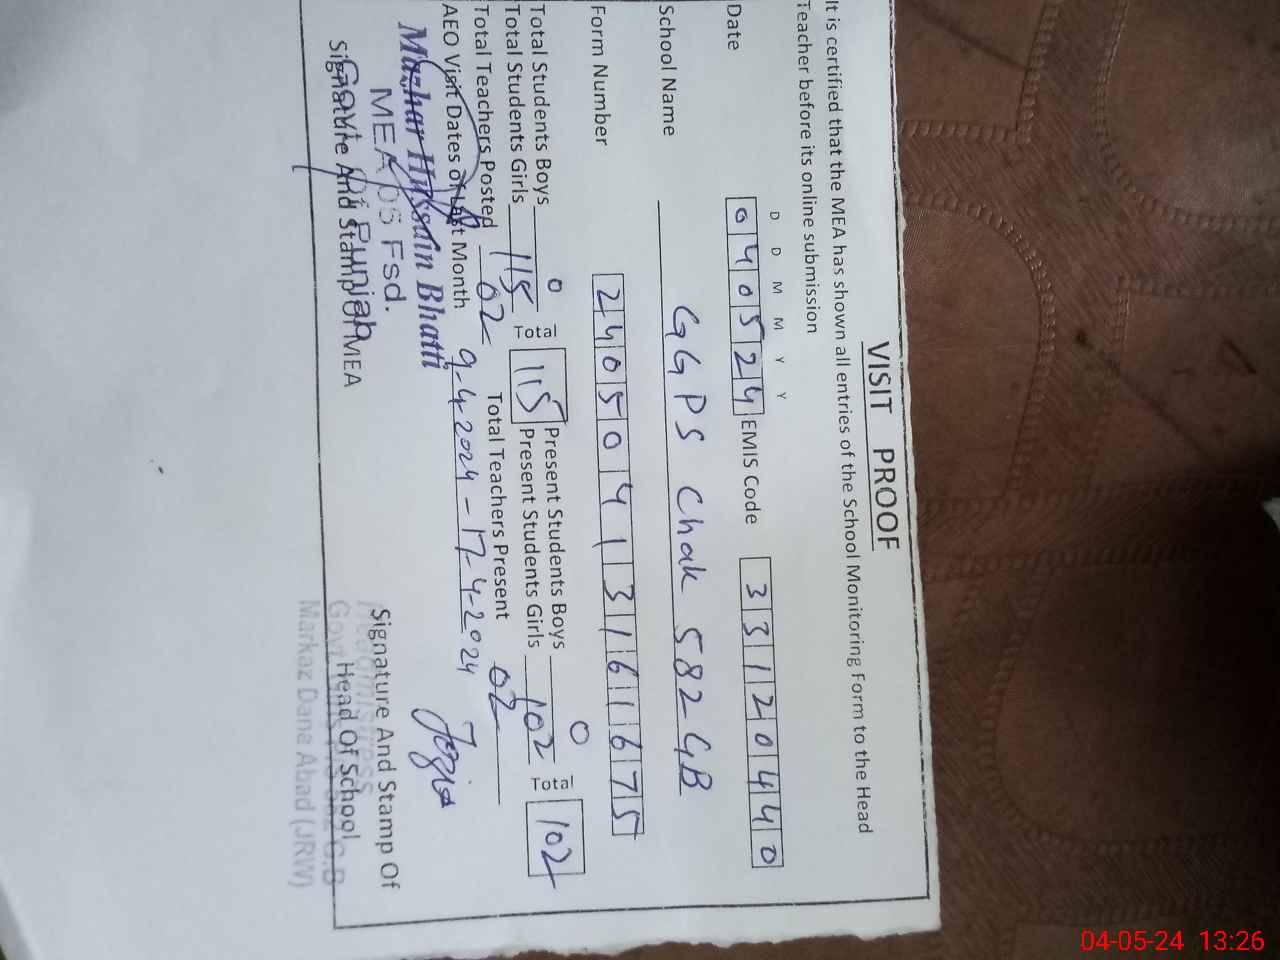 VISIT PROOF
It is certified that the MEA has shown all entries of the School Monitoring Form to the Head
Teacher before its online submission
D D M M Y Y
Date 040524 EMIS Code 33120440
School Name GGPS Chak 582 GB
Form Number 24050413161675
Total Students Boys 0 Total 115 Present Students Boys 0 Total 102
Total Students Girls 115 Present Students Girls 102
Total Teachers Posted 02 Total Teachers Present 02
AEO Visit Dates of Last Month 9-4-2024 - 17-4-2024
Mazhar Hussain Bhatti
MEA 05 Fsd.
Govt. Of Punjab
Signature And Stamp Of MEA
Signature And Stamp Of
Head Of School
Headmistress
Markaz Dana Abad (JRW)
04-05-24 13:26